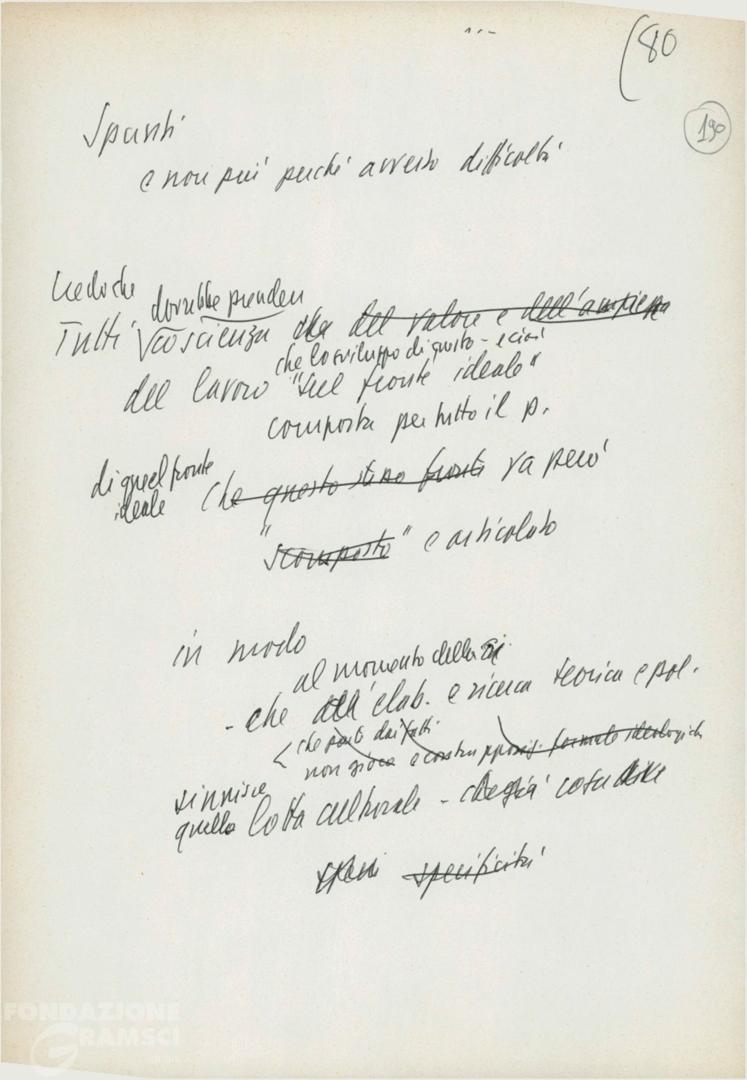 (80
190
Spunti
e non più perché avverto difficoltà
Credo che
dovrebbe prender
Tutti coscienza che del valore e dell'ampiezza
che lo sviluppo di questo - e cioè
del lavoro "sul fronte ideale"
comporta per tutto il p.
di quel fronte
ideale
Che questo stesso fronte va però
"scomposto" e articolato
in modo
al momento della
- che all'elab. e ricerca teorica e pol.
che parti dai fatti
non gioca e formule ideologich
si unisce
quella lotta culturale - che già
specificità
FONDAZIONE
GRAMSCI